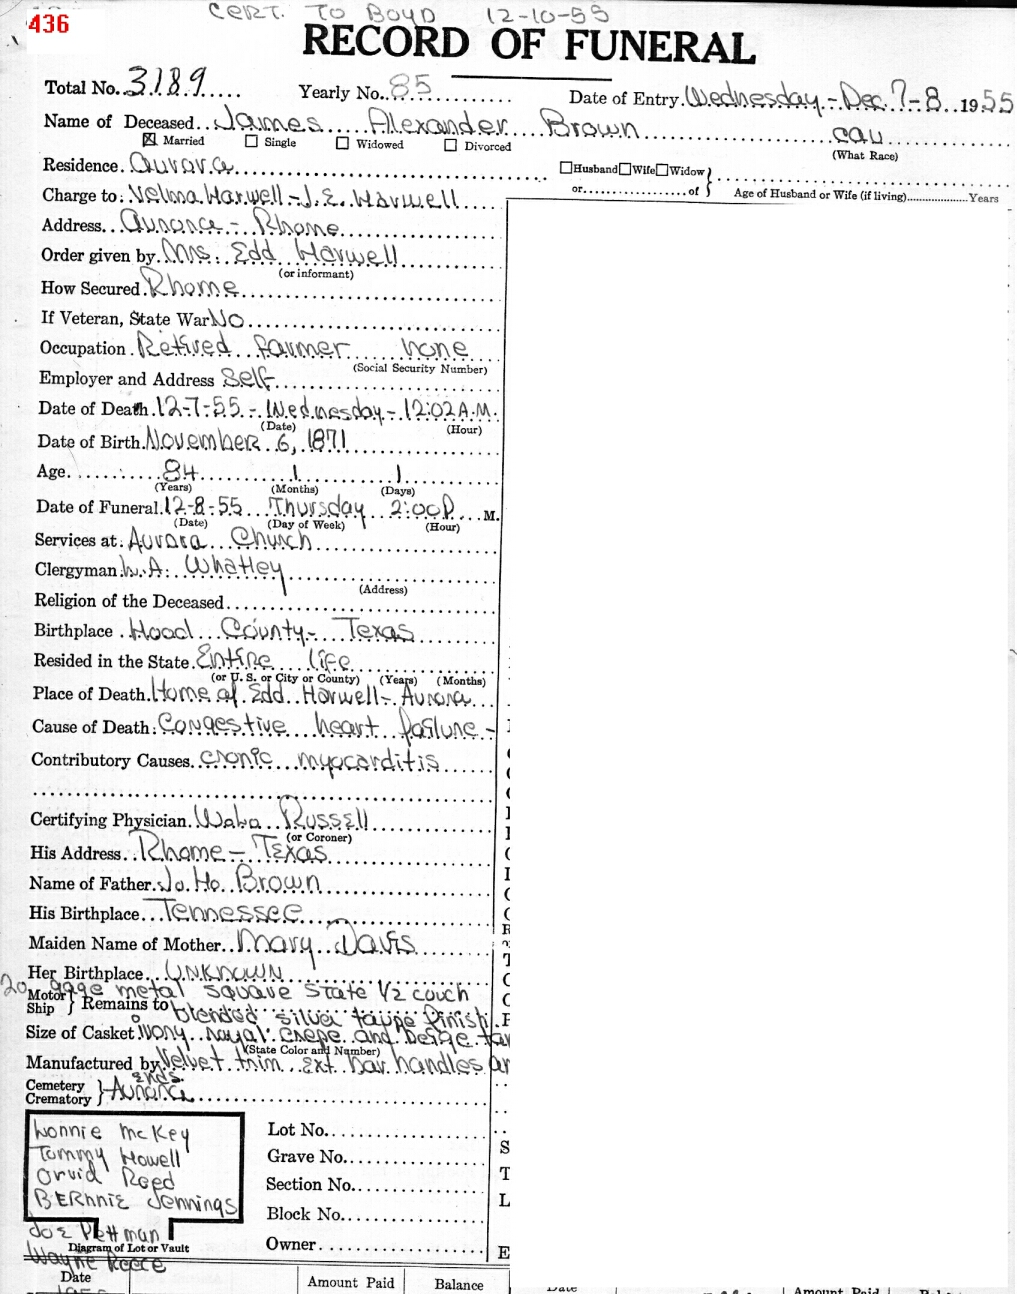 CERT. TO BOYD 12-10-55
436
RECORD OF FUNERAL
Total No. 3189 Yearly No. 85 Date of Entry Wednesday - Dec 7-8 1955
Name of Deceased James Alexander Brown cau
☒ Married ☐ Single ☐ Widowed ☐ Divorced (What Race)
Residence Aurora ☐ Husband ☐ Wife ☐ Widow
or of Age of Husband or Wife (if living) Years
Charge to: Velma Harwell - J.E. Harwell
Address Aurora - Rhome
Order given by Mrs. Edd Harwell
(or informant)
How Secured Rhome
If Veteran, State War No
Occupation Retired farmer none
(Social Security Number)
Employer and Address Self
Date of Death 12-7-55 - Wednesday - 12:02 A.M.
(Date) (Hour)
Date of Birth November 6, 1871
Age 84 1 1
(Years) (Months) (Days)
Date of Funeral 12-8-55 Thursday 2:00P M.
(Date) (Day of Week) (Hour)
Services at: Aurora Church
Clergyman W.A. Whatley
(Address)
Religion of the Deceased
Birthplace Hood County - Texas
Resided in the State Entire life
(or U. S. or City or County) (Years) (Months)
Place of Death Home of Edd Harwell - Aurora
Cause of Death: Congestive heart failure -
Contributory Causes cronic myocarditis
Certifying Physician Russell
(or Coroner)
His Address Rhome - Texas
Name of Father Jo. Ho. Brown
His Birthplace Tennessee
Maiden Name of Mother Mary Davis
Her Birthplace UNKNOWN
20 gage metal square State 1/2 couch
Motor Ship } Remains to blended silver taupe finish
Size of Casket Ivory royal crepe and beige
(State Color and Number)
Manufactured by Velvet trim Ext. bar handles
ends.
Cemetery Crematory } Aurora
Lonnie McKey Lot No.
Tommy Howell Grave No.
Orvid Reed Section No.
BERNNIE Jennings Block No.
Joe Pettman Owner
Diagram of Lot or Vault
Wayne Reece
Date Amount Paid Balance